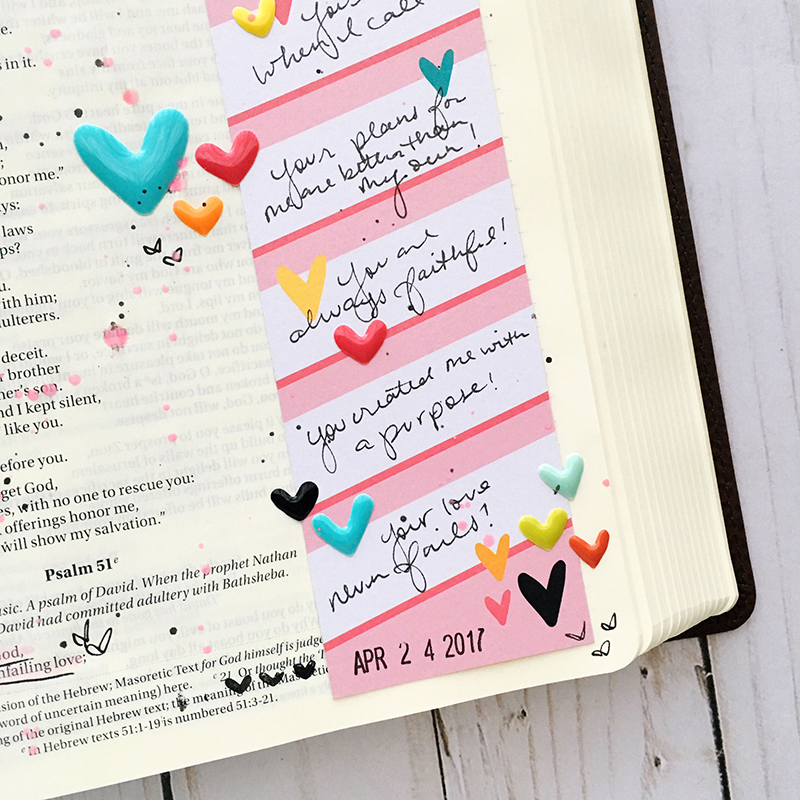 be.
s in it.
onor me.”
ys:
laws
ps?
u.
with him;
ulterers.
deceit.
r brother
her's son.
nd I kept silent,
like you.
efore you.
get God,
es, with no one to rescue you:
offerings honor me,
will show my salvation.”
Psalm 51 e
usic. A psalm of David. When the prophet Nathan
David had committed adultery with Bathsheba.
God,
nfailing love;
sion of the Hebrew; Masoretic Text for God himself is judge
word of uncertain meaning) here. c 21 Or thought the 'I
ng of the original Hebrew text; the meaning of the Masoretic
e In Hebrew texts 51:1-19 is numbered 51:3-21.
You
when I call
Your plans for
me are better than
my own!
You are
always faithful!
you created me with
a purpose!
Your love
never fails!
APR 24 2017